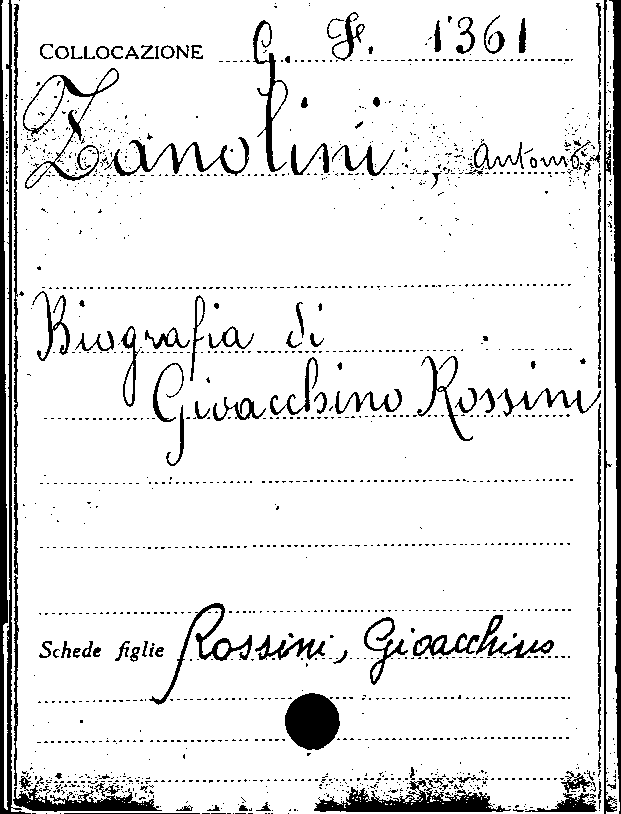 COLLOCAZIONE G. F. 1361
Zanolini, Antonio
Biografia di
Gioacchino Rossini
Schede figlie Rossini, Gioacchino